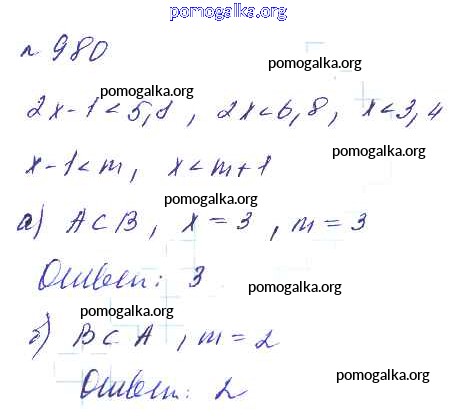 pomogalka.org
№ 980
pomogalka.org pomogalka.org
2x-1<5,8, 2x<6,8, x<3,4
x-1<m, x<m+1 pomogalka.org
а) A⊂B, x=3, m=3
pomogalka.org pomogalka.org
Ответ: 3 pomogalka.org
pomogalka.org
б) B⊂A, m=2
Ответ: 2 pomogalka.org